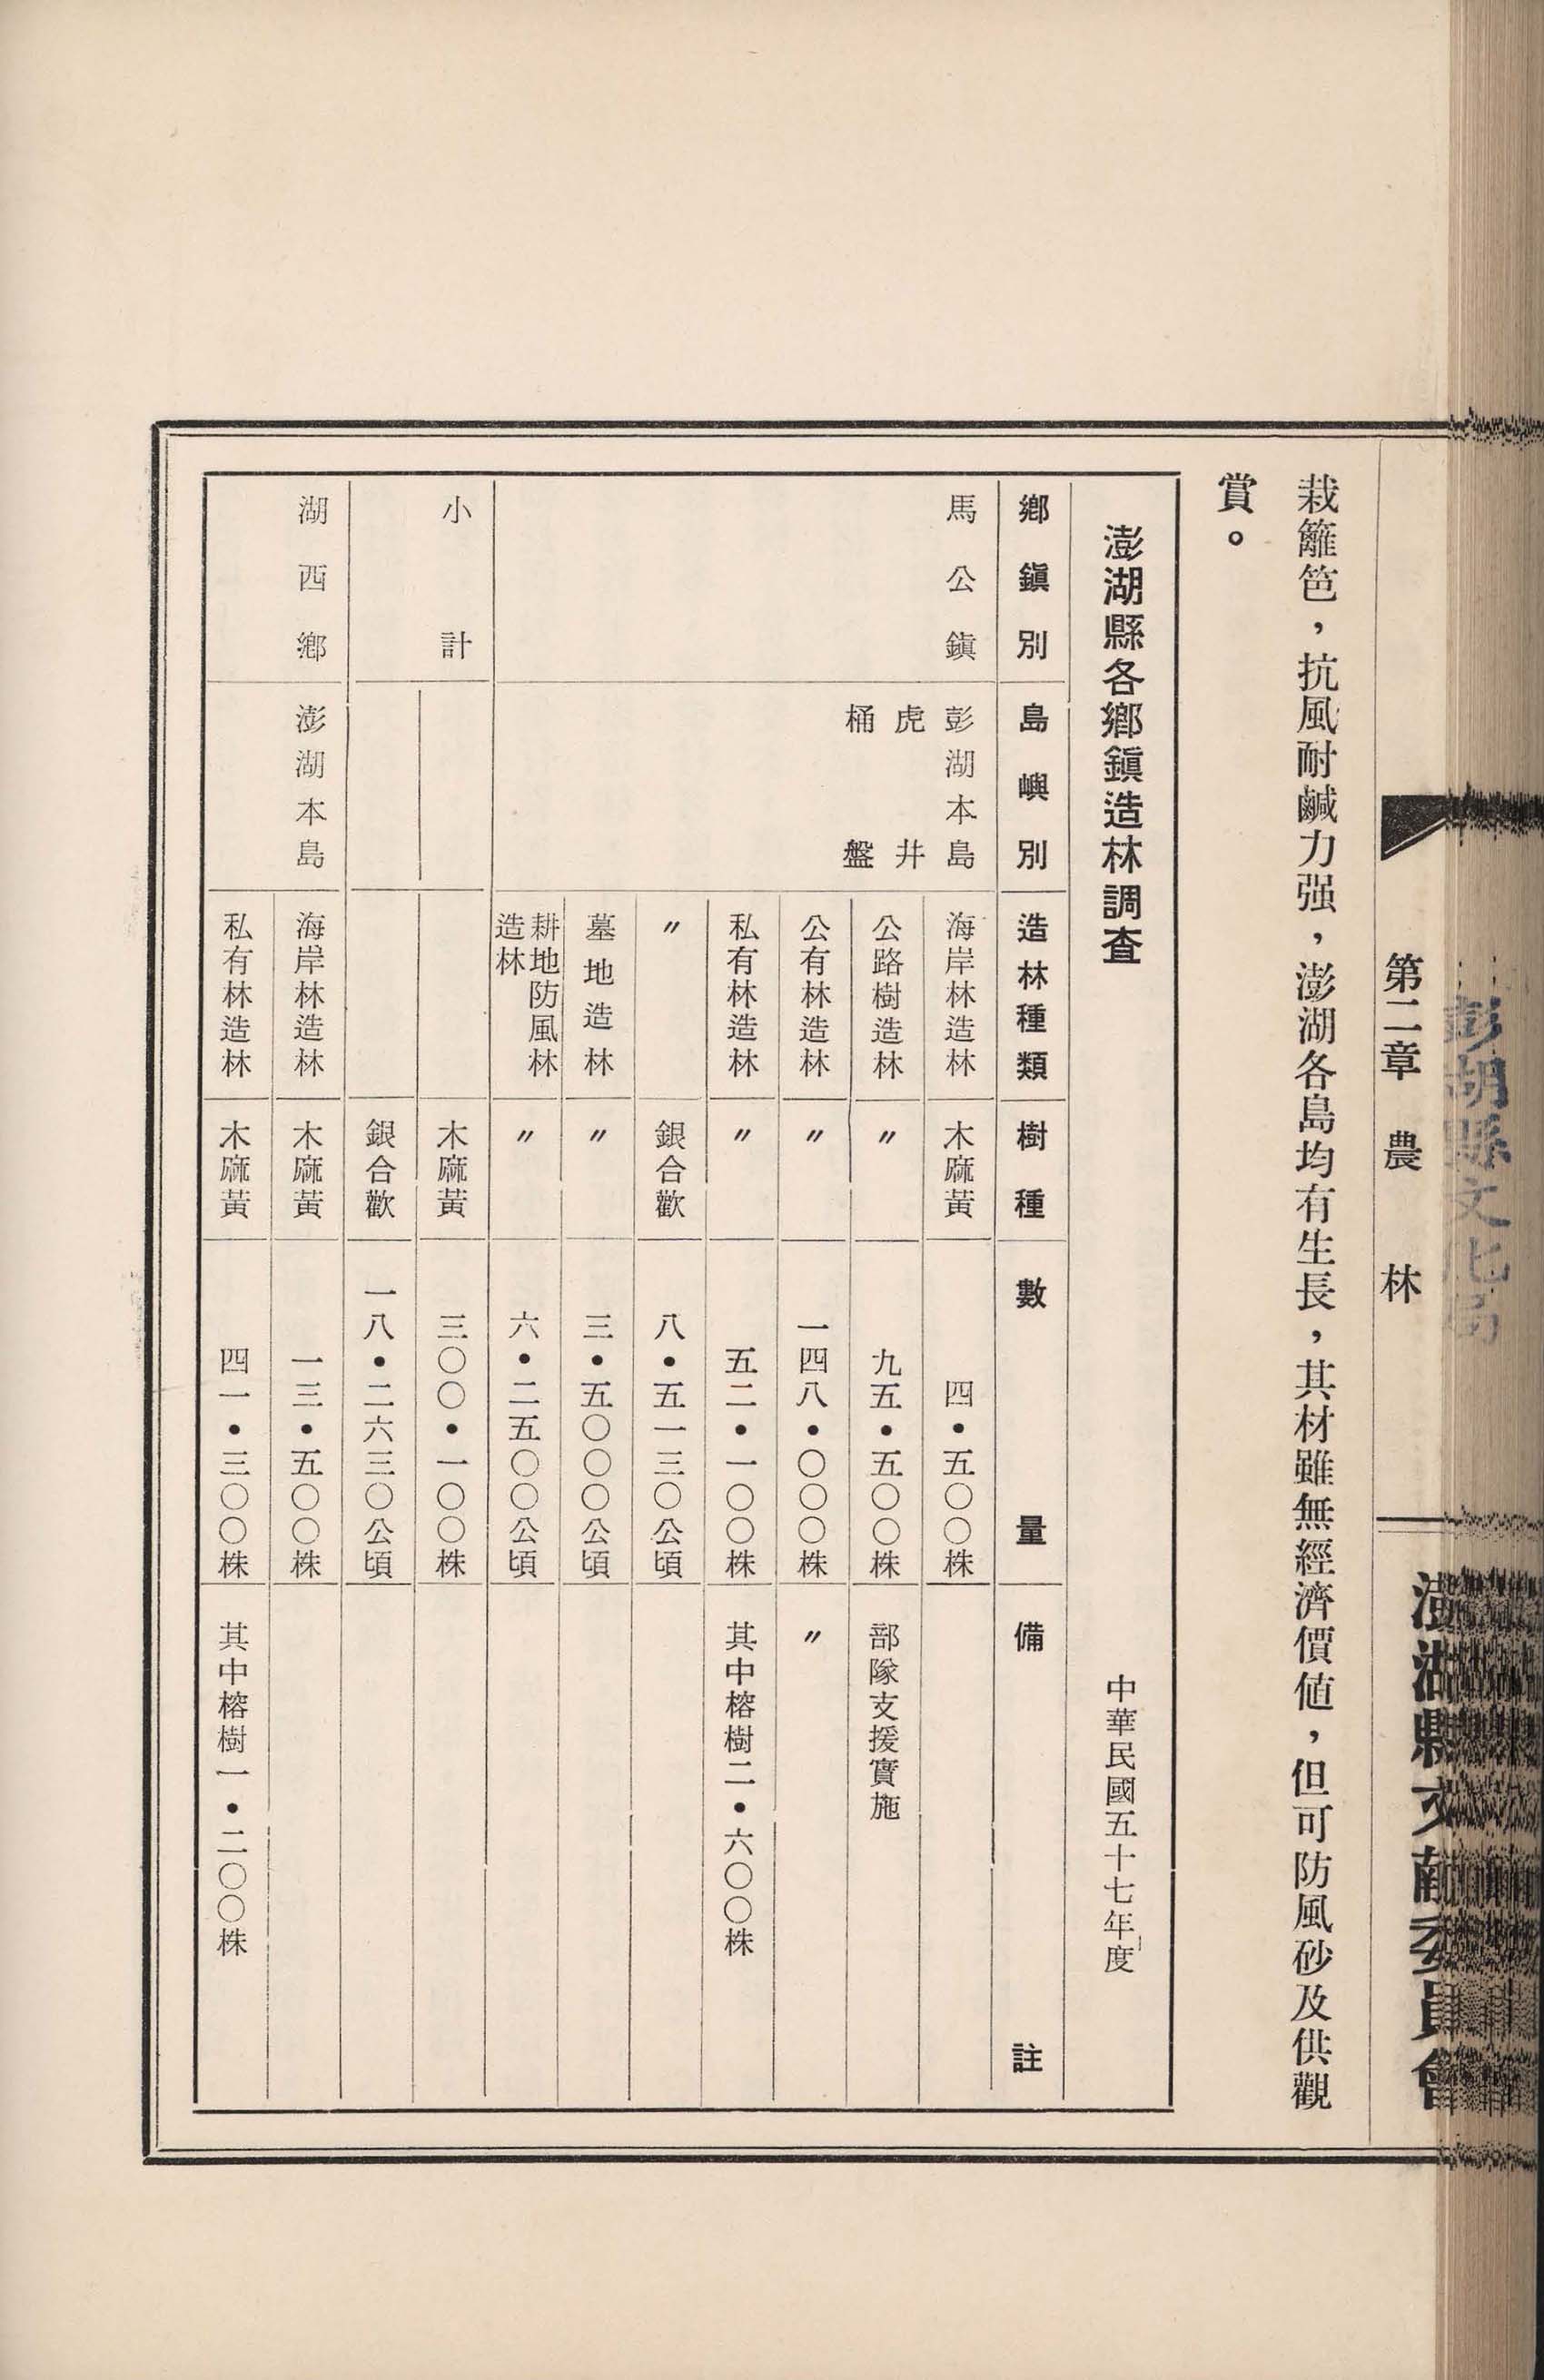 澎湖縣文獻委員會
第二章　農　林
澎湖縣文化局
栽籬笆，抗風耐鹹力强，澎湖各島均有生長，其材雖無經濟價値，但可防風砂及供觀
賞。
澎湖縣各鄉鎭造林調查　中華民國五十七年度
鄉鎭別　島嶼別　造林種類　樹種　數量　備註
馬公鎭　彭湖本島　海岸林造林　木麻黃　四・五〇〇株
虎井　公路樹造林　〃　九五・五〇〇株　部隊支援實施
桶盤　公有林造林　〃　一四八・〇〇〇株　〃
私有林造林　〃　五二・一〇〇株　其中榕樹二・六〇〇株
〃　銀合歡　八・五一三〇公頃
墓地造林　〃　三・五〇〇〇公頃
耕地防風林
造林　〃　六・二五〇〇公頃
小計　木麻黃　三〇〇・一〇〇株
銀合歡　一八・二六三〇公頃
湖西鄉　澎湖本島　海岸林造林　木麻黃　一三・五〇〇株
私有林造林　木麻黃　四一・三〇〇株　其中榕樹一・二〇〇株